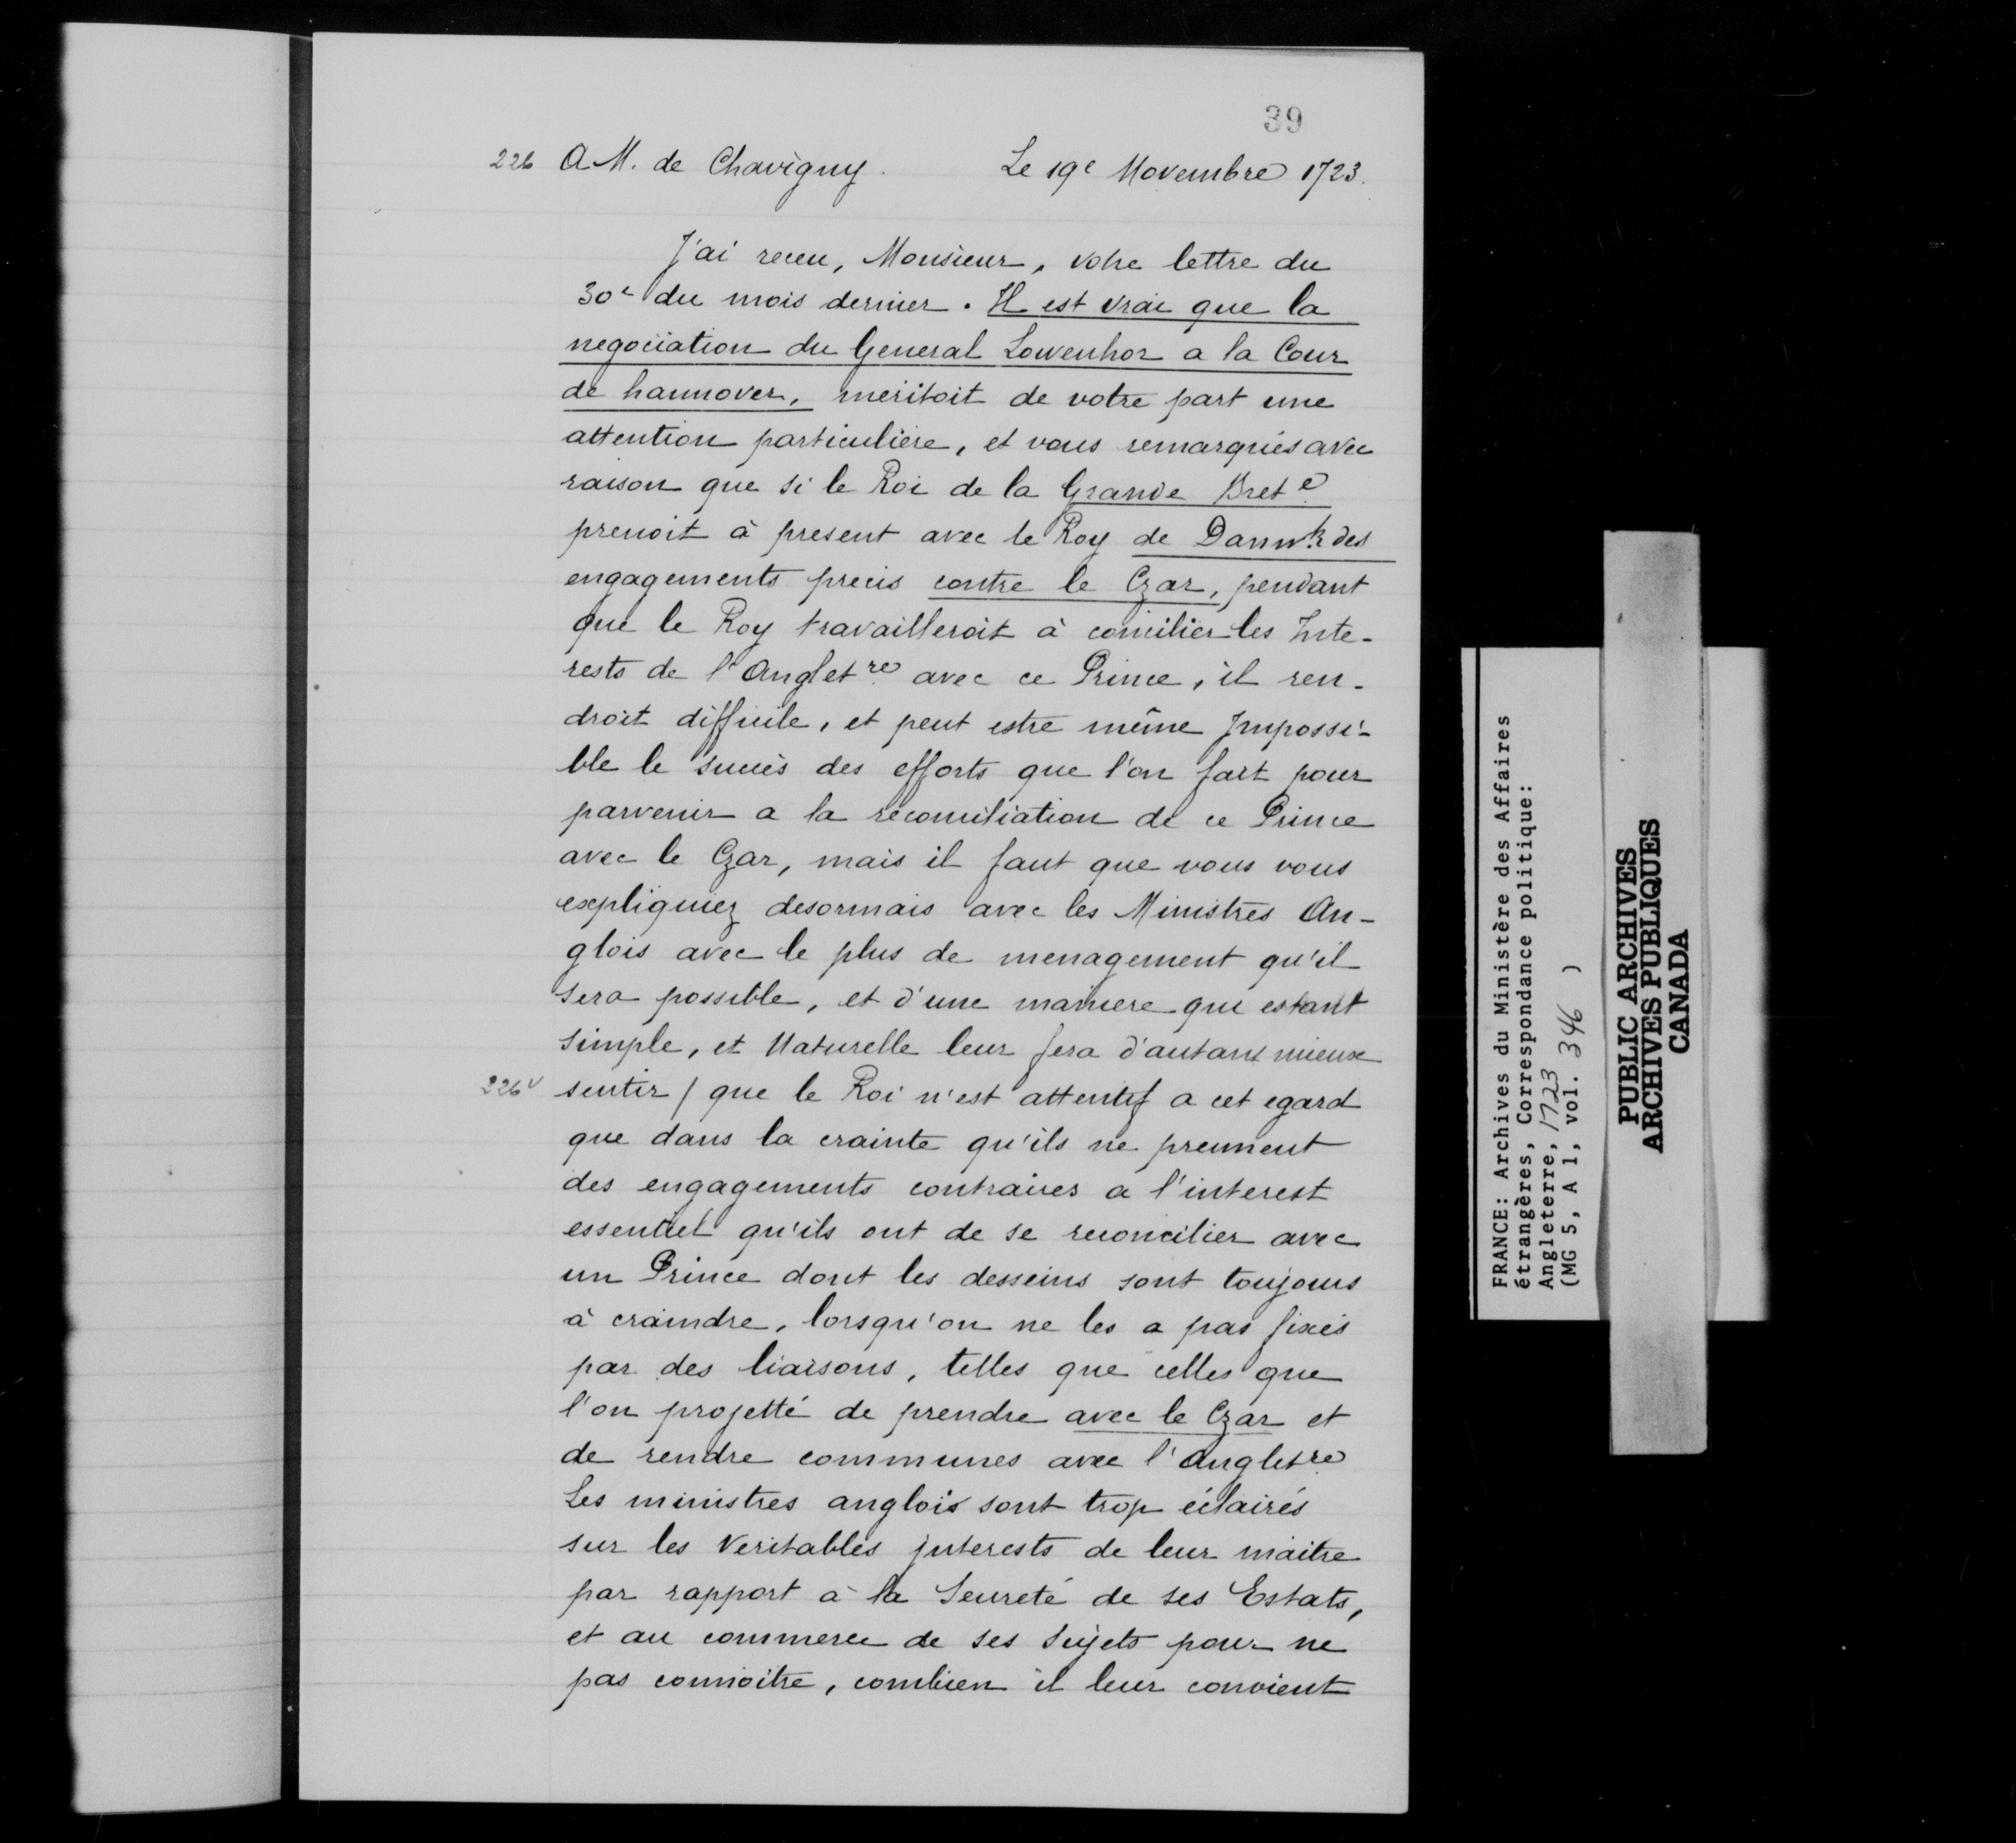 39
226 A M. de Chavigny. Le 19e Novembre 1723.
J'ai receu, Monsieur, votre lettre du
30e du mois dernier. Il est vrai que la
negociation du General Lowenhor a la Cour
de hannover, meritoit de votre part une
attention particulière, et vous remarqués avec
raison que si le Roi de la Grande Brete
prenoit à present avec le Roy de Dannk des
engagements precis contre le Czar, pendant
que le Roy travailleroit à concilier les Inte-
rests de l'Angletre avec ce Prince, il ren-
droit difficile, et peut estre même Impossi-
ble le succès des efforts que l'on fait pour
parvenir a la reconciliation de ce Prince
avec le Czar, mais il faut que vous vous
expliquiez desormais avec les Ministres An-
glois avec le plus de menagement qu'il
sera possible, et d'une maniere qui estant
simple, et Naturelle leur fera d'autant mieux
226v sentir / que le Roi n'est attentif a cet egard
que dans la crainte qu'ils ne prennent
des engagements contraires a l'interest
essentiel qu'ils ont de se reconcilier avec
un Prince dont les desseins sont toujours
à craindre, lorsqu'on ne les a pas fixés
par des liaisons, telles que celles que
l'on projetté de prendre avec le Czar et
de rendre communes avec l'Angletre
Les ministres anglois sont trop éclairés
sur les Veritables interests de leur maitre
par rapport à la Seureté de ses Estats,
et au commerce de ses sujets pour ne
pas connoitre, combien il leur convient
FRANCE: Archives du Ministère des Affaires
étrangères, Correspondance politique:
Angleterre, 1723
(MG 5, A 1, vol. 346 )
PUBLIC ARCHIVES
ARCHIVES PUBLIQUES
CANADA